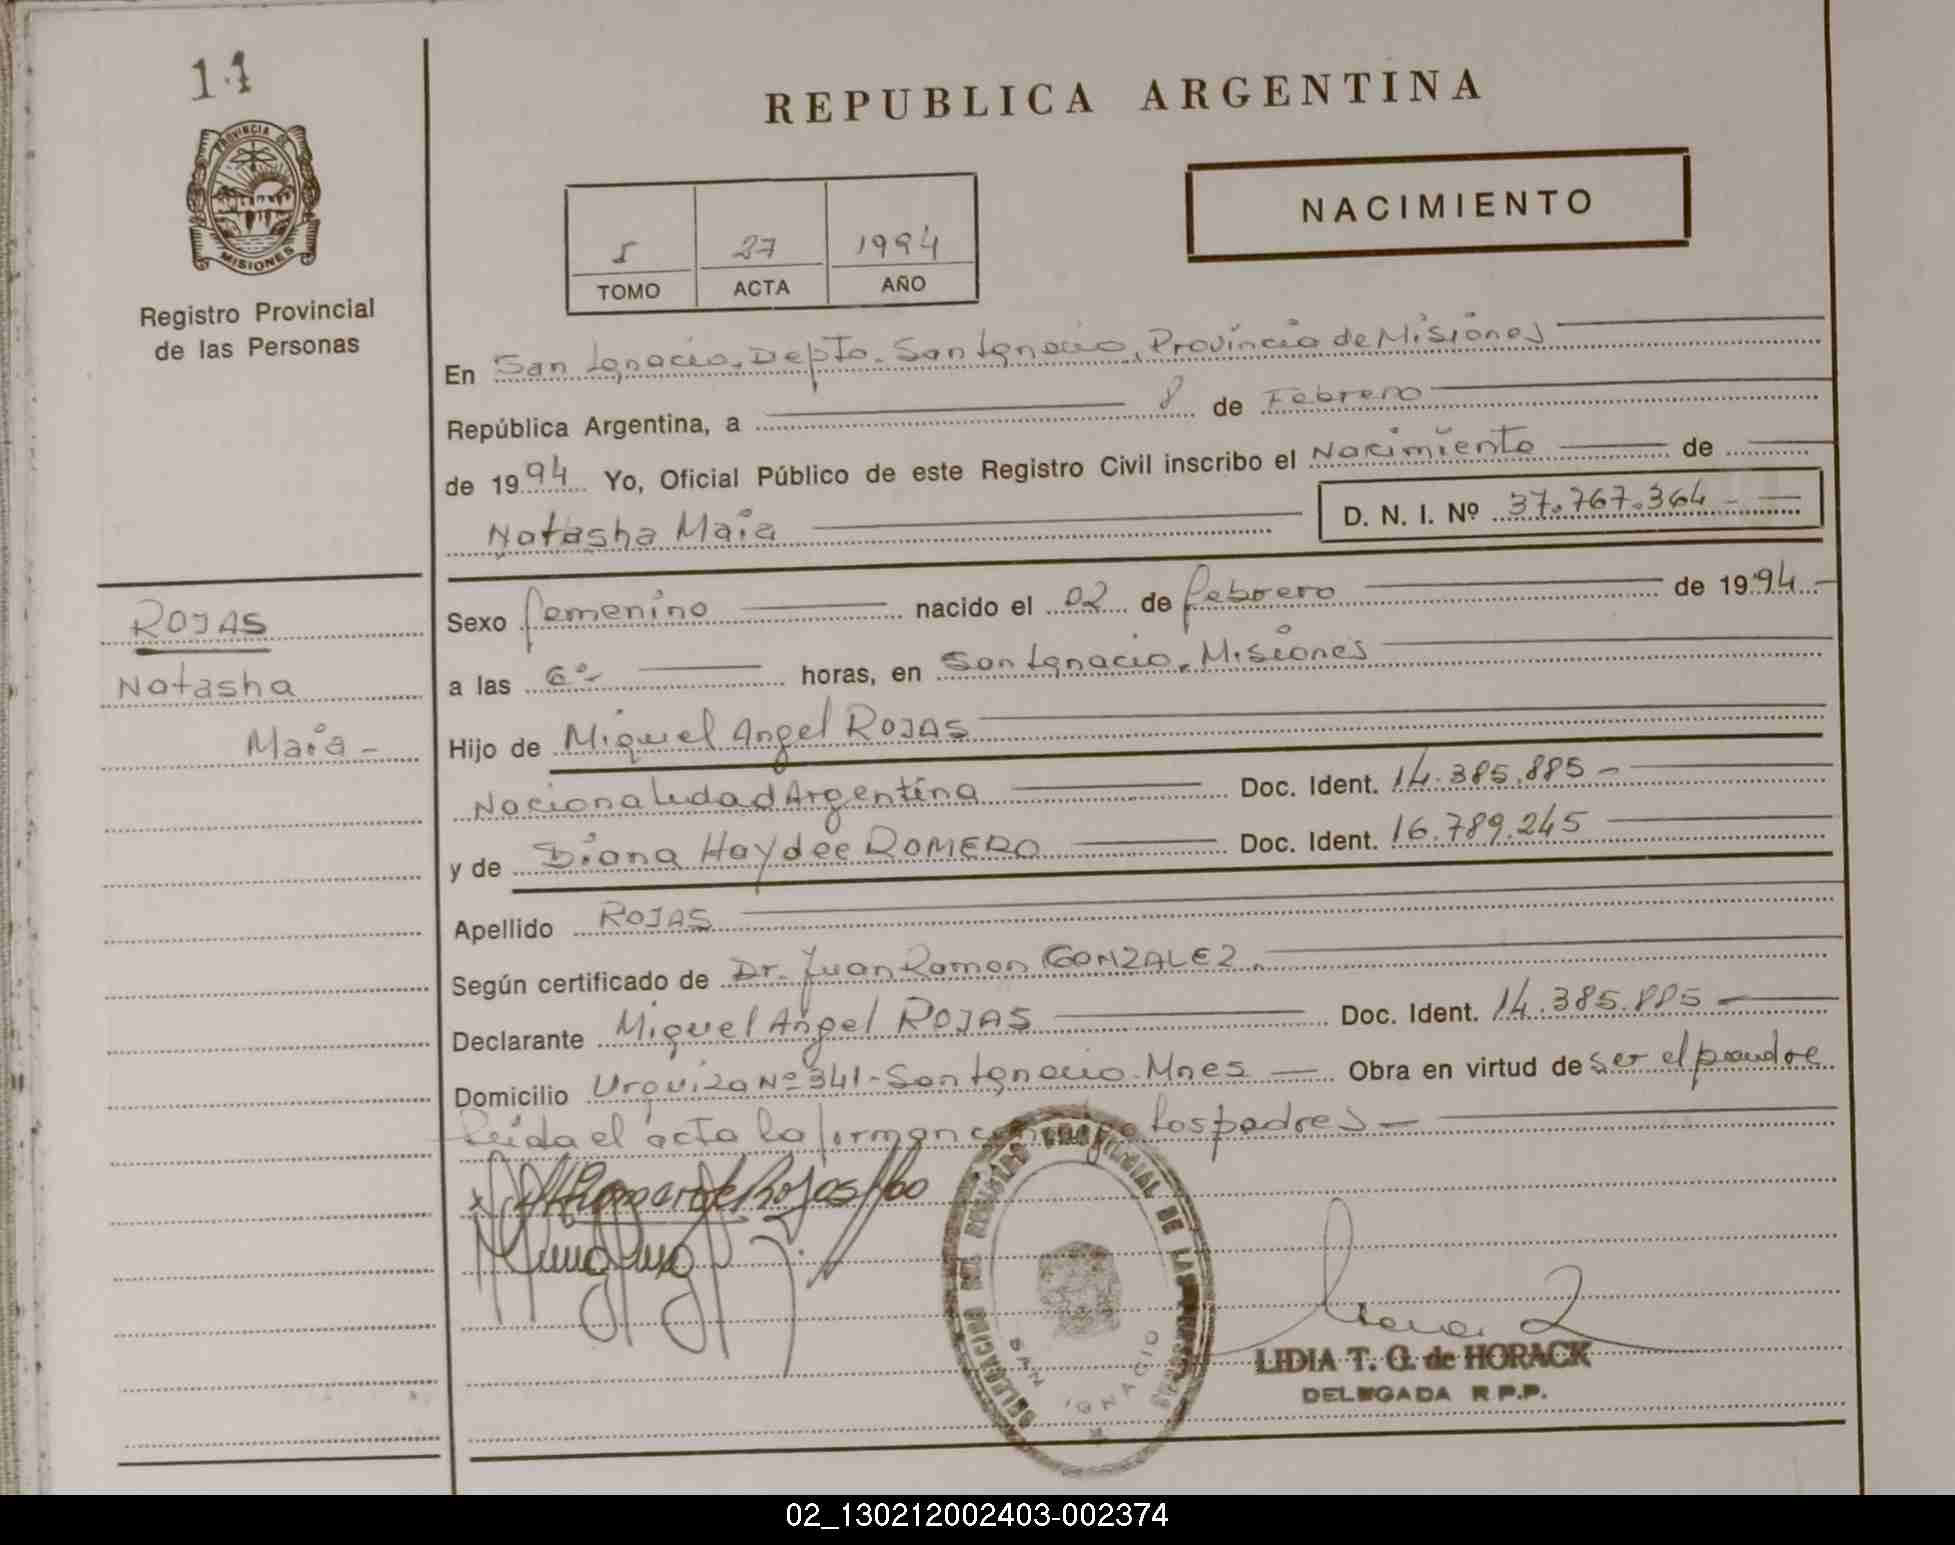 14
PROVINCIA DE
MISIONES
Registro Provincial
de las Personas
REPUBLICA ARGENTINA
NACIMIENTO
5 27 1994
TOMO ACTA AÑO
En San Ignacio, Depto. San Ignacio, Provincia de Misiones
República Argentina, a 8 de Febrero
de 1994 Yo, Oficial Público de este Registro Civil inscribo el Nacimiento de
Natasha Maia D. N. I. Nº 37.767.364 -
ROJAS
Natasha
Maia -
Sexo femenino nacido el 02 de febrero de 1994.-
a las 6 horas, en San Ignacio, Misiones
Hijo de Miguel Angel ROJAS
Nacionalidad Argentina Doc. Ident. 14.385.885 -
y de Diana Haydee ROMERO Doc. Ident. 16.789.245
Apellido ROJAS
Según certificado de Dr. Juan Ramon GONZALEZ
Declarante Miguel Angel ROJAS Doc. Ident. 14.385.885 -
Domicilio Urquiza Nº 341 - San Ignacio - Mnes Obra en virtud de ser el padre
Leída el acta la firman conmigo los padres -
DELEGACION DEL REGISTRO PROVINCIAL DE LAS PERSONAS
SAN IGNACIO
LIDIA T. G. de HORACK
DELEGADA R P.P.
02_130212002403-002374